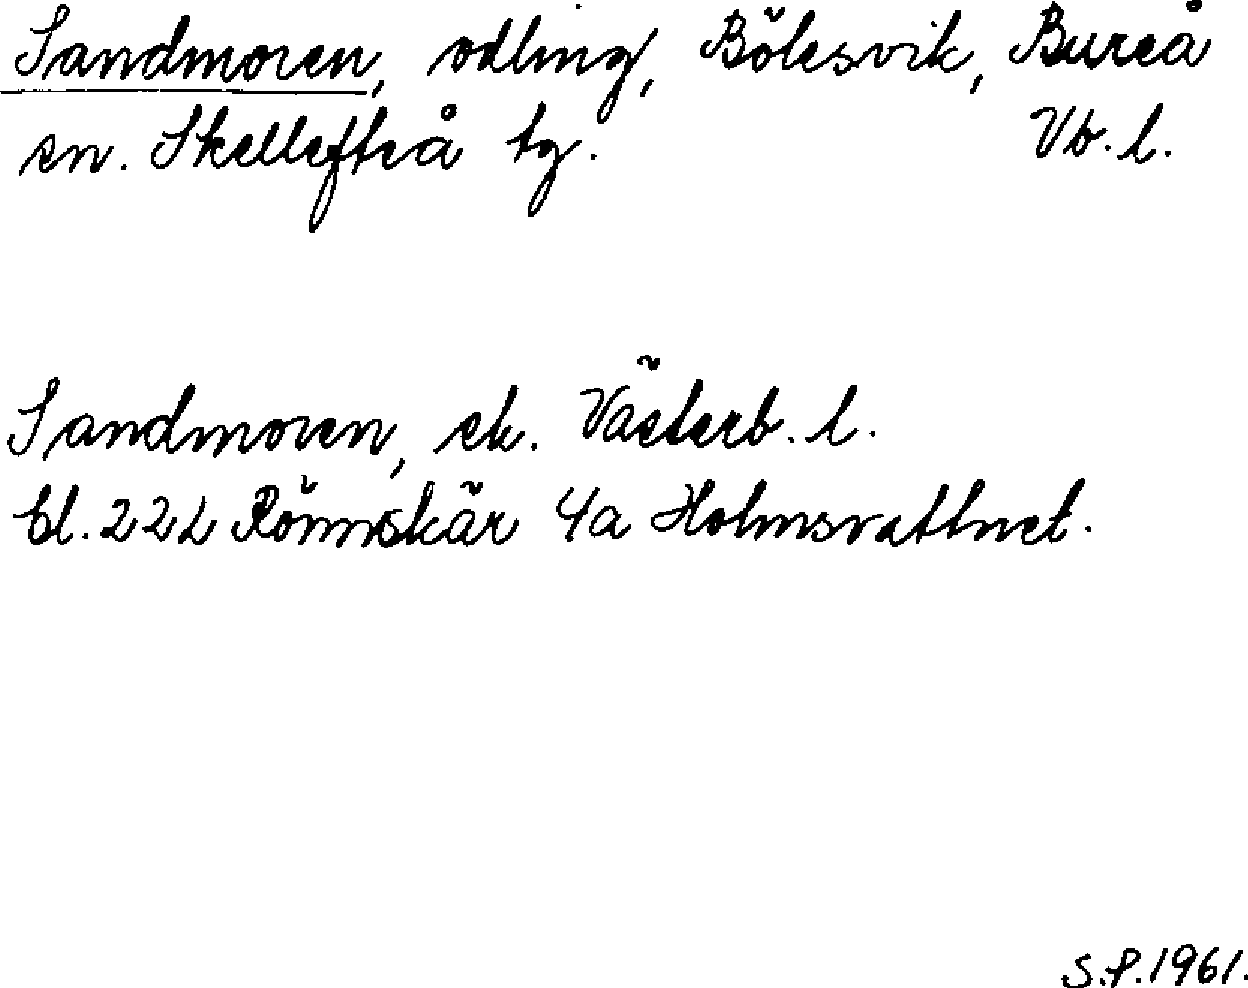 Sandmoren, odling, Bölesvik, Bureå
sn. Skellefteå tg. Vb. l.
Sandmoren, ek. Västerb. l.
bl. 22L Rönnskär 4a Holmsvattnet.
S.P. 1961.